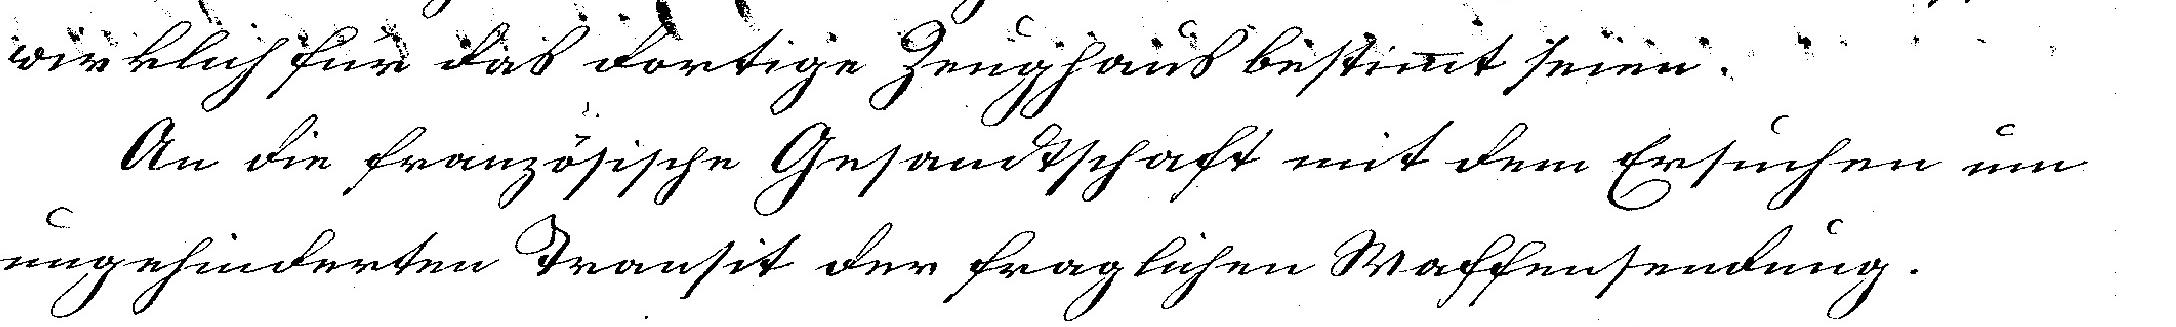 wirklich für das dortige Zeughaus bestim̅t seien.
An die französische Gesandtschaft mit dem Ersuchen um
ungehinderten Transit der fraglichen Waffensendung.